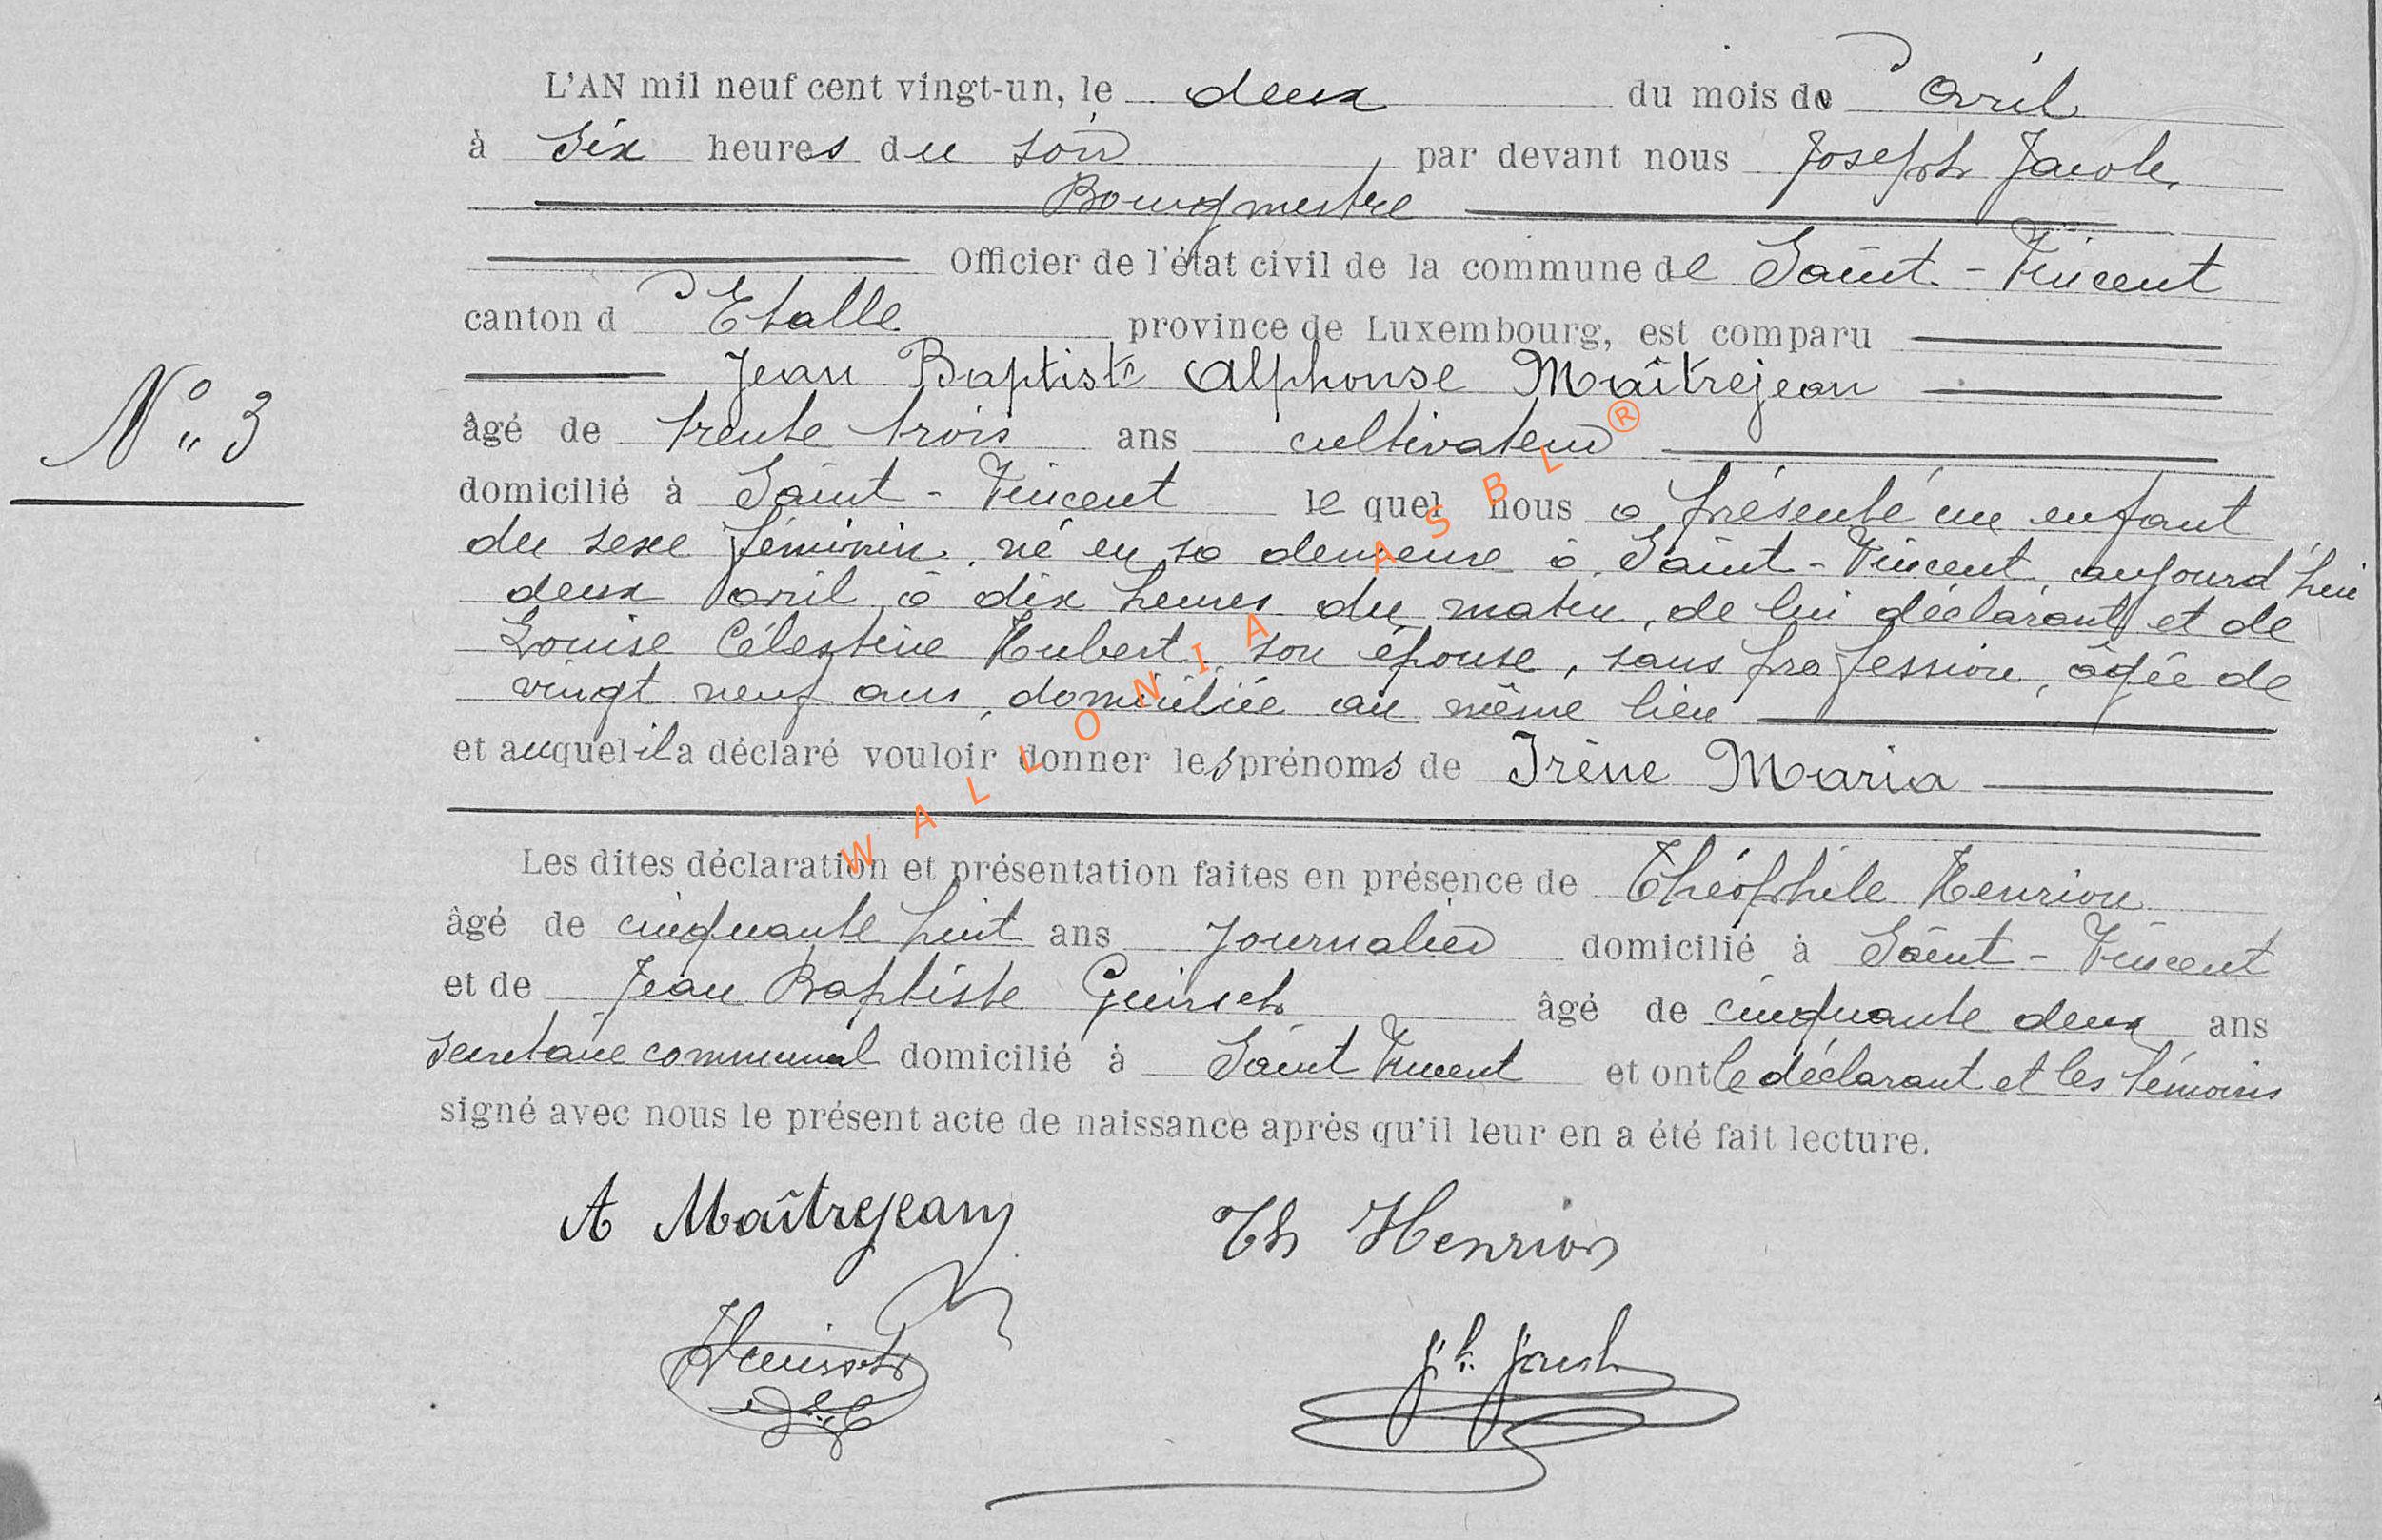 L'AN mil neuf cent vingt-un, le deux du mois d'avril
à six heures du soir par devant nous Joseph Jacob,
Bourgmestre
Officier de l'état civil de la commune de Saint-Vincent
canton d'Etalle province de Luxembourg, est comparu
Jean Baptiste Alphonse Maîtrejean
N° 3
âgé de trente trois ans cultivateur
domicilié à Saint-Vincent lequel nous a présenté un enfant
du sexe féminin, né en sa demeure à Saint-Vincent, aujourd'hui
deux avril à dix heures du matin, de lui déclarant et de
Louise Célestine Hubert, son épouse, sans profession, âgée de
vingt neuf ans, domiciliée au même lieu
et auquel il a déclaré vouloir donner les prénoms de Irène Maria
Les dites déclaration et présentation faites en présence de Théophile Henrion
âgé de cinquante huit ans journalier domicilié à Saint-Vincent
et de Jean Baptiste Guirsch âgé de cinquante deux ans
secrétaire communal domicilié à Saint Vincent et ont le déclarant et les témoins
signé avec nous le présent acte de naissance après qu'il leur en a été fait lecture.
A Maîtrejean Th Henrion
Jh Jacob
WALLONIA ASBL ®